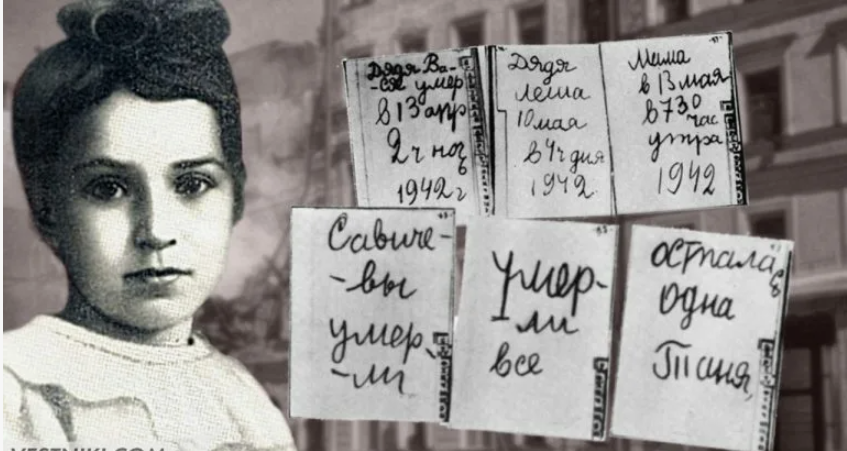 Дядя Ва-
-ся умер
в 13 апр
2 ч ноч
1942 г
Дядя
Леша
10 мая
в 4 ч дня
1942
Мама
в 13 мая
в 730
час
утра
1942
Савиче-
-вы
умер
-ли
умер-
-ли
все
осталась
одна
Таня
VESTNIKI.COM